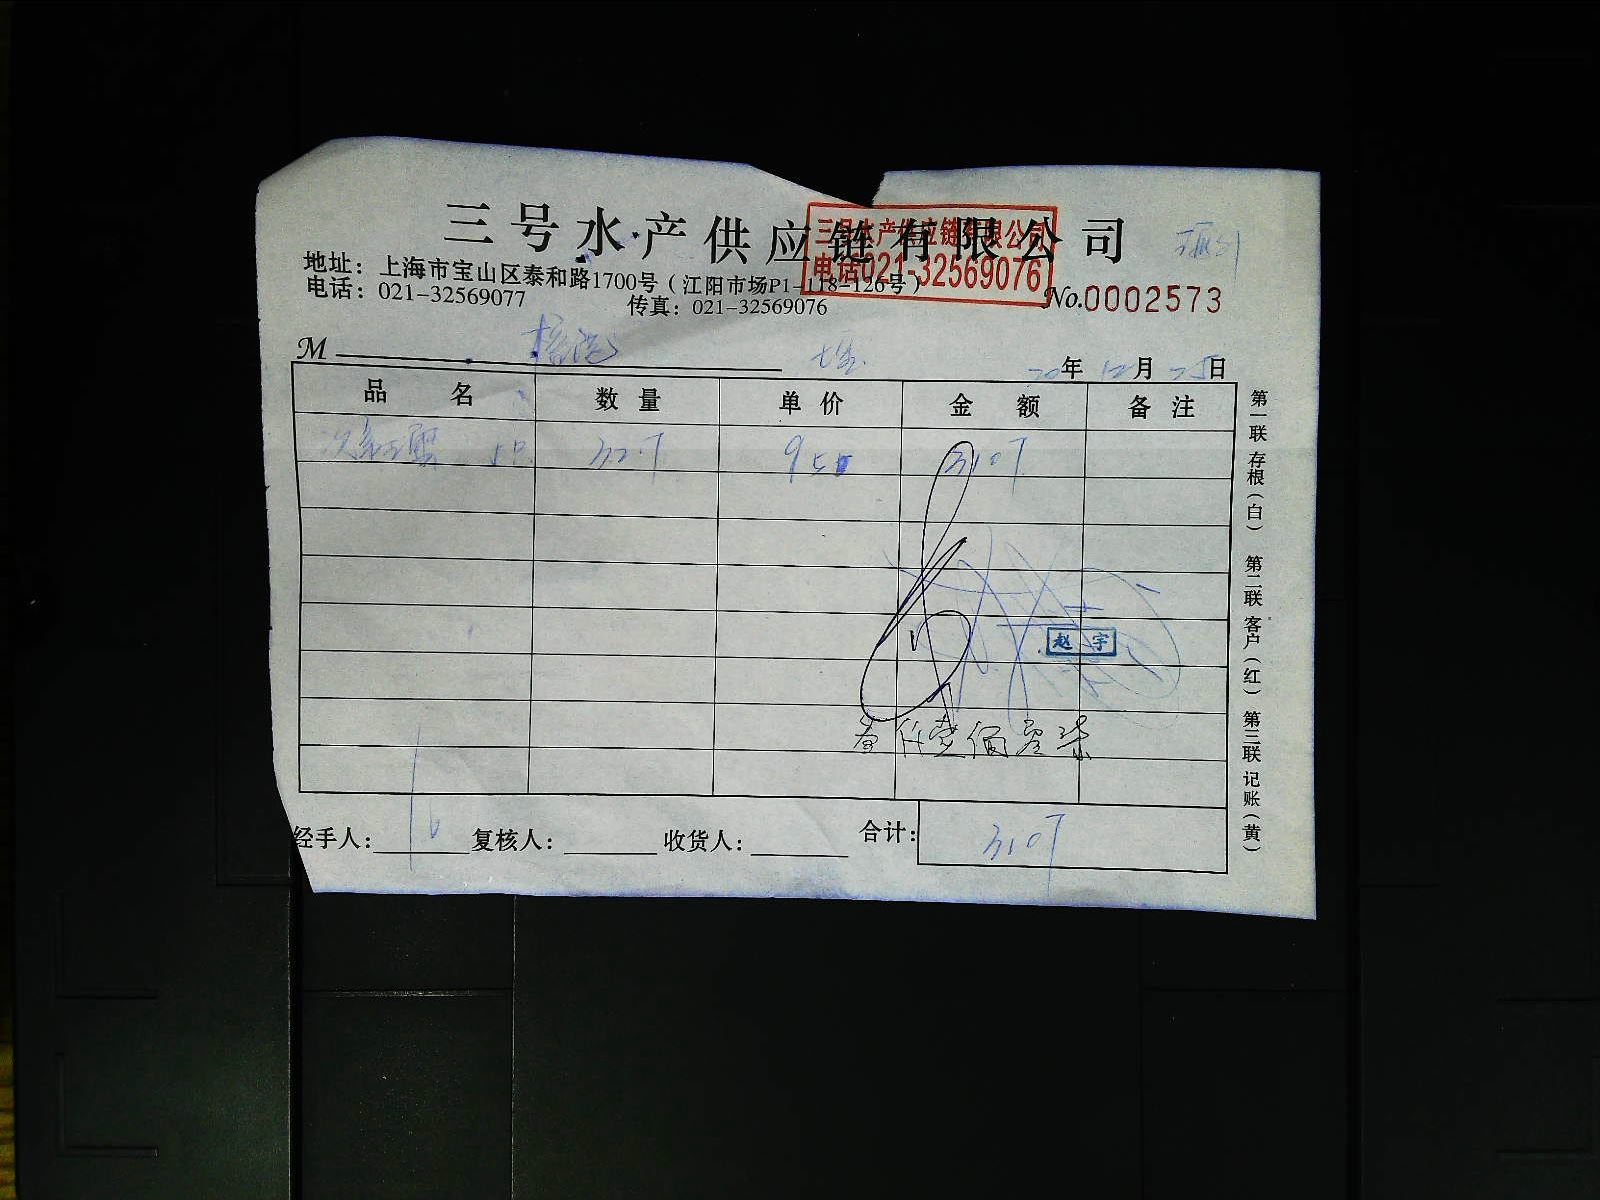 三号水产供应链有限公司
三号水产供应链有限公司
电话021-32569076
地址：上海市宝山区泰和路1700号（江阳市场P1-118-126号）
电话：021-32569077 传真：021-32569076
No.0002573
M
20年12月25日
品名 数量 单价 金额 备注
3107
赵宇
叁仟壹佰零柒
经手人： 复核人： 收货人： 合计：3107
第一联 存根（白） 第二联 客户（红） 第三联 记账（黄）